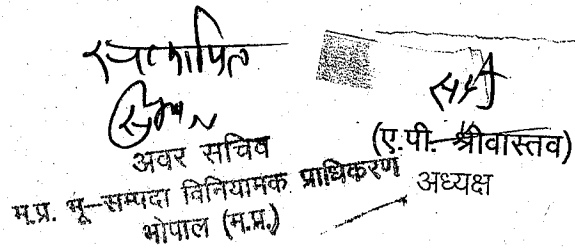 सत्यापित
अवर सचिव
म.प्र. भू-सम्पदा विनियामक प्राधिकरण
भोपाल (म.प्र.)
सही
(ए.पी. श्रीवास्तव)
अध्यक्ष